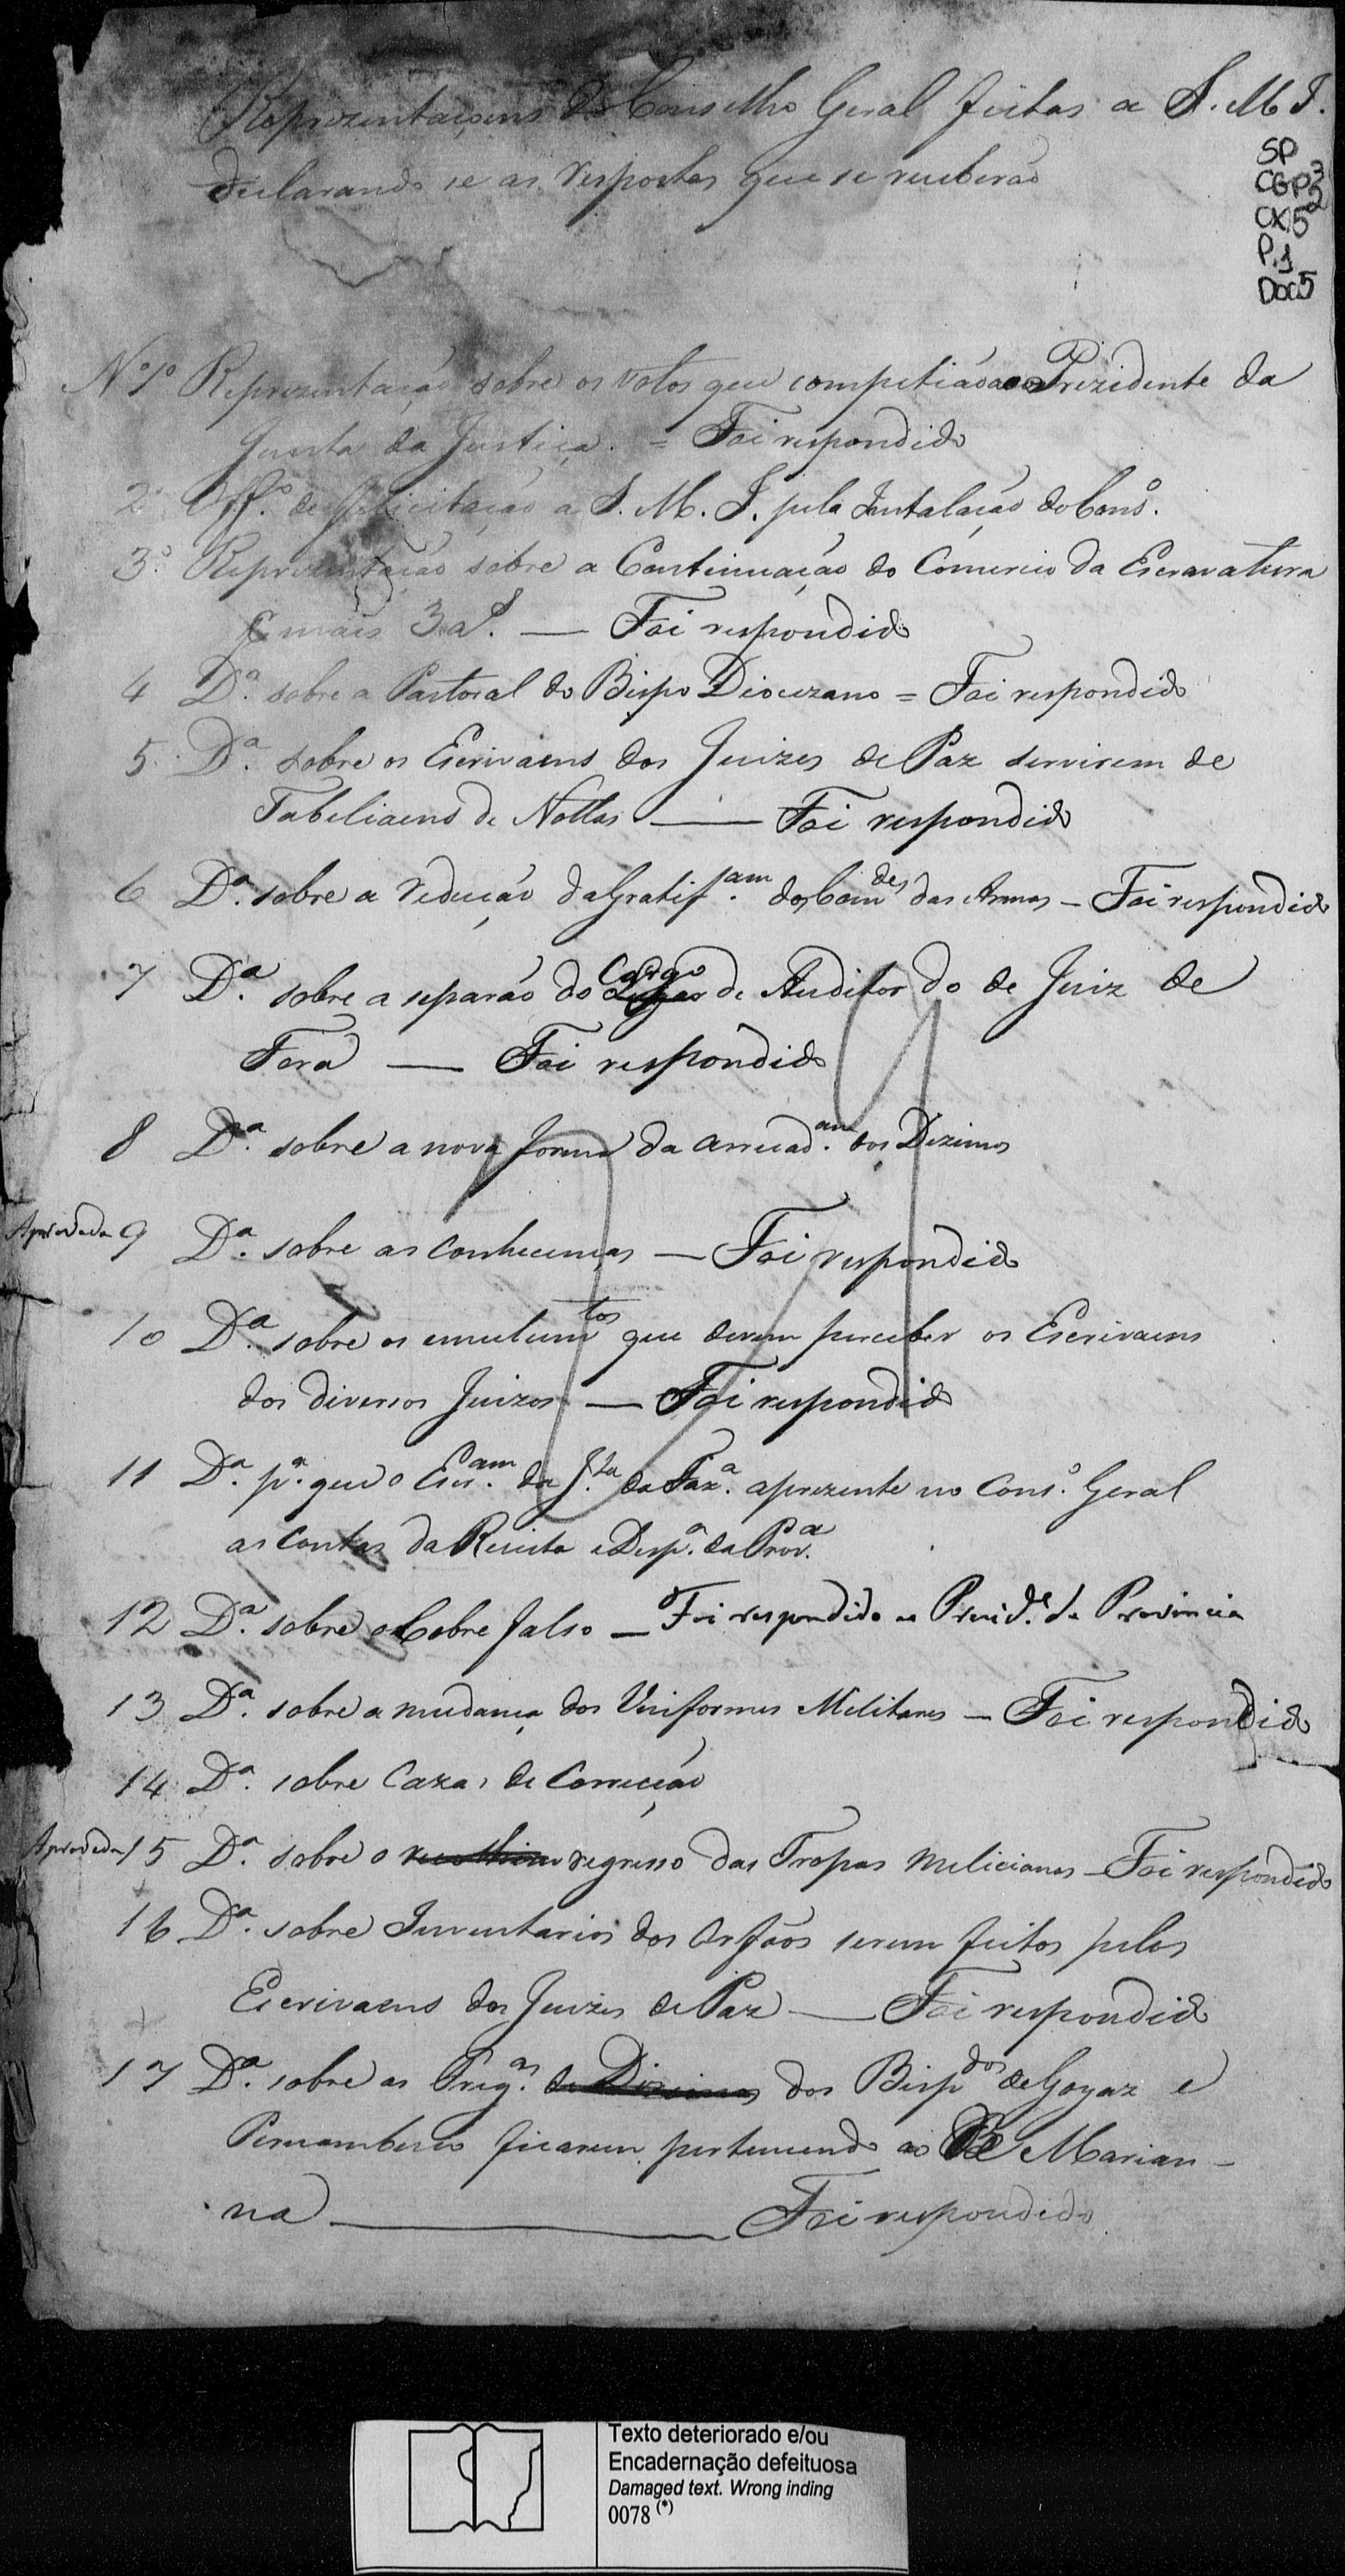 Reprezentaçoens do Conselho Geral feitas a S. M. I.
declarando se as respostas que se receberão
SP
CGP3
2
CX.5
P.1
Doc5
Nº 1º Reprezentação sobre os votos que competião ao Prezidente da
Junta da Justiça. = Foi respondido
2º Offº. de felicitação a S. M. I. pela Instalação do Consº.
3º. Reprezentação sobre a Continuação do Comercio da Escravatura
p mais 3 aˢ. — Foi respondido
4 Dª. sobre a Pastoral do Bispo Diocezano = Foi respondido
5 Dª. sobre os Escrivaens dos Juizes de Paz servirem de
Tabeliaens de Nottas — Foi respondido
6 Dª. sobre a redução da Gratifᵃᵐ. dos Comᵈᵉˢ das Armas — Foi respondido
7 Dª. sobre a separão do Cargo de Auditor do de Juiz de
Fora — Foi respondido
8 Dª. sobre a nova forma da arrecadᵃᵐ. dos Dizimos
Aprovada 9 Dª. sobre as conhecenças — Foi respondido
10 Dª. sobre os emolumᵗᵒˢ que devem perceber os Escrivaens
dos diversos Juizos — Foi respondido
11 Dª. pª. que o Escᵃᵐ. da Jᵗᵃ. da Fazª. aprezente no Consº. Geral
as Contas da Receita e Despª. da Provª.
12 Dª. sobre o Cobre falso — Foi respondido ao Presidᵉ. da Provincia
13 Dª. sobre a mudança dos Uniformes Militares — Foi respondido
14 Dª. sobre Cazas de Correcção
Aprovada 15 Dª. sobre o regresso das Tropas Milicianas — Foi respondido
16 Dª. sobre Inventarios dos Orfãos serem feitos pelos
Escrivaens dos Juizes de Paz — Foi respondido
17 Dª. sobre as Fregᵃˢ. dos Bispᵈᵒˢ de Goyaz e
Pernambuco ficarem pertencendo ao de Marian-
na — Foi respondido
Texto deteriorado e/ou
Encadernação defeituosa
Damaged text. Wrong inding
0078 (*)